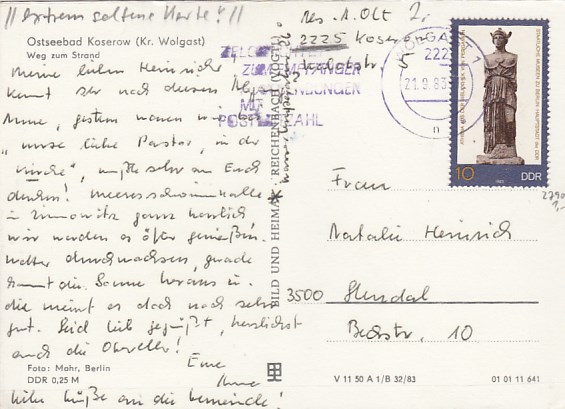 //extrem seltene Karte!//
Ostseebad Koserow (Kr. Wolgast)
Weg zum Strand
Meine lieben Heinrichs
kennt Ihr noch diesen
gestern waren wir bei
"unsre liebe Pastor, in der
Kirche", mußte sehr an Euch
denken! Meeresschwimmhalle
in Zinnowitz ganz herrlich
wir werden es öfter genießen.
Wetter durchwachsen, gerade
kommt die Sonne heraus u.
die meint es doch noch sehr
gut. Seid lieb gegrüßt, herzlichst
auch die
Eure
Foto: Mohr, Berlin
DDR 0,25 M
liebe Grüße an die Gemeinde!
BILD UND HEIMAT REICHENBACH (VOGTL)
Wasser
bis 1. Okt
2225 Koserow
ZUM EMPFÄNGER
MIT
POSTLEITZAHL
WOLGAST 1
222
21.9.83
n
STAATLICHE MUSEEN ZU BERLIN · HAUPTSTADT der DDR
10
DDR
Frau
Natalie Heinrich
3500 Stendal
Beckstr. 10
V 11 50 A 1/B 32/83
01 01 11 641